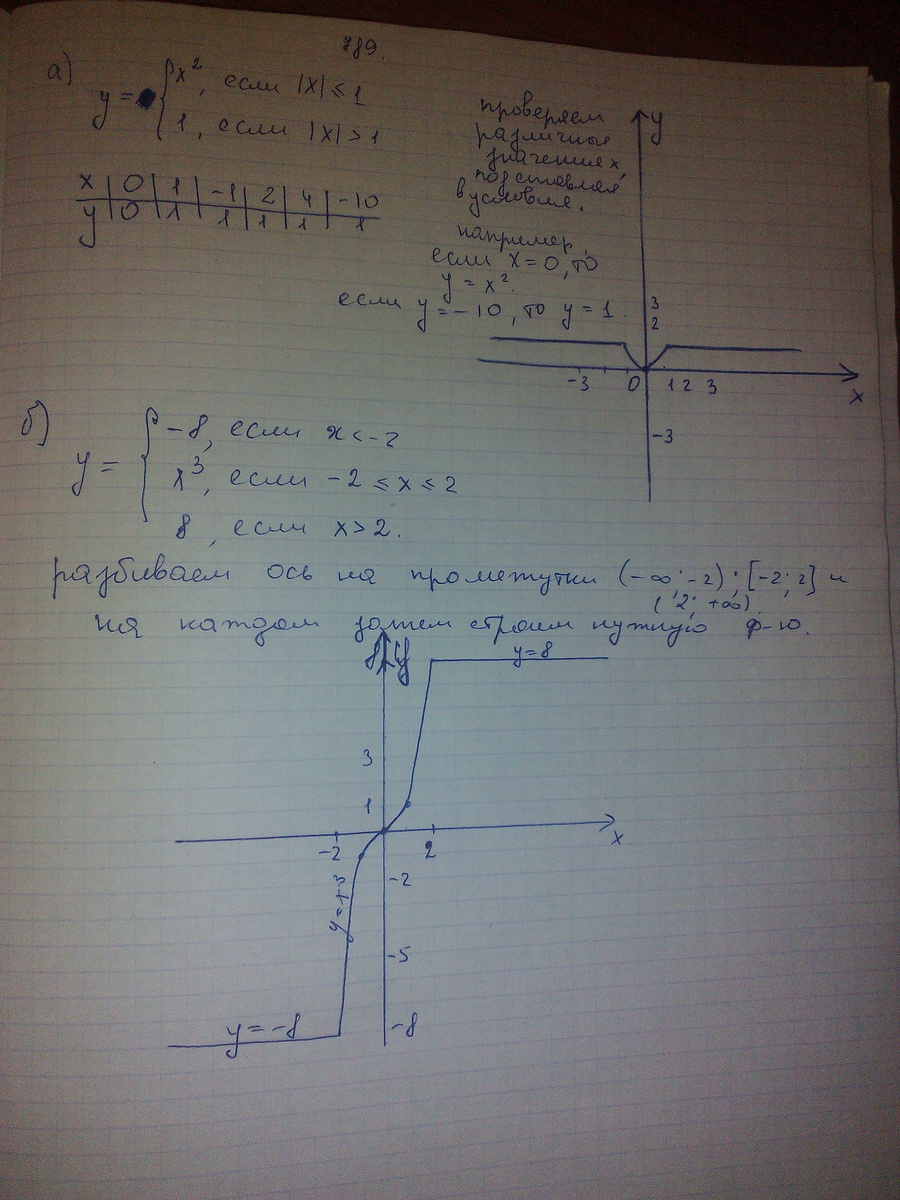 789.
а)
y = { x², если |x| ≤ 1
1, если |x| > 1
x | 0 | 1 | -1 | 2 | 4 | -10
y | 0 | 1 | 1 | 1 | 1 | 1
проверяем
различные
значения x,
подставляя
в условия.
например,
если x = 0, то
y = x².
если y = -10, то y = 1
y
3
2
-3 0 1 2 3
x
-3
б)
y = { -8, если x < -2
x³, если -2 ≤ x ≤ 2
8, если x > 2.
разбиваем ось на промежутки (-∞; -2); [-2; 2] и
(2; +∞).
на каждом затем строим нужную ф-ю.
8 y
y = 8
3
1
-2 2
x
-2
y = x³
-5
y = -8
-8